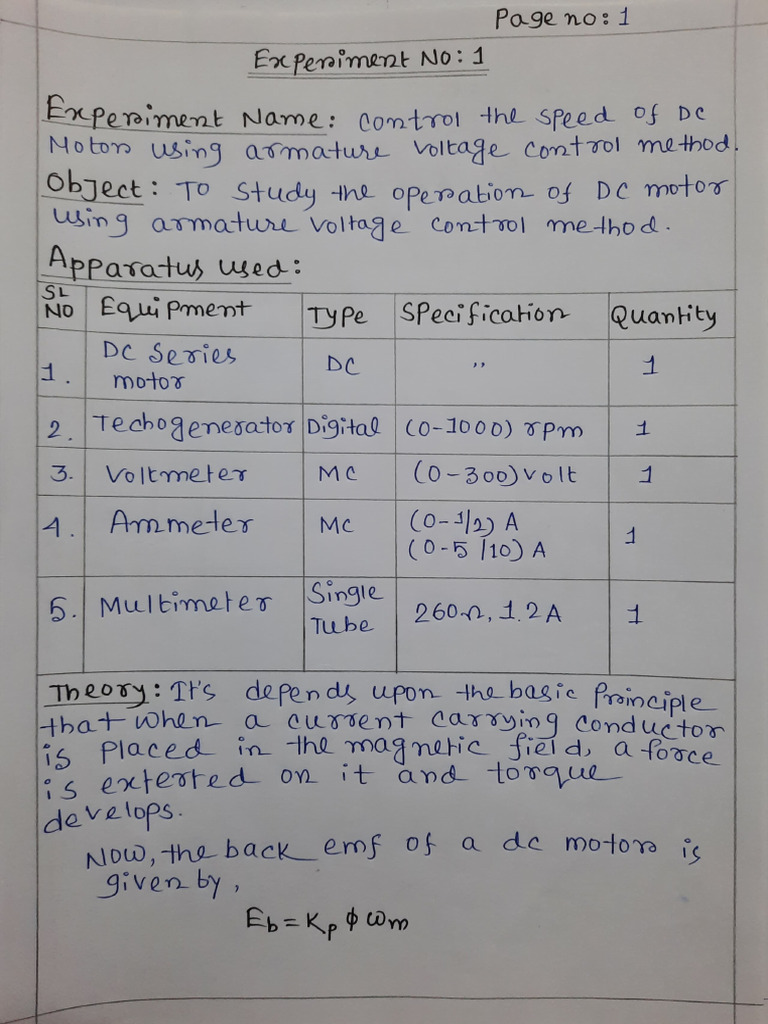 Page no: 1
Experiment No: 1
Experiment Name: Control the speed of DC
Motor using armature voltage control method.
Object: To study the operation of DC motor
using armature voltage control method.
Apparatus used:
SL NO Equipment Type Specification Quantity
1. DC Series motor DC " 1
2. Techogenerator Digital (0-1000) rpm 1
3. Voltmeter MC (0-300) volt 1
4. Ammeter MC (0-1/2) A (0-5/10) A 1
5. Multimeter Single Tube 260Ω, 1.2A 1
Theory: It's depends upon the basic Principle
that when a current carrying conductor
is placed in the magnetic field, a force
is exterted on it and torque
develops.
Now, the back emf of a dc motor is
given by,
Eb = Kp ϕ ωm